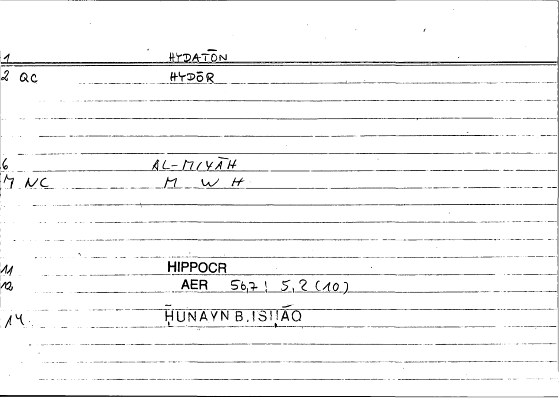 1 HYDATŌN
2 QC HYDŌR
6 AL-MIYĀH
M NC M W H
11 HIPPOCR
12 AER 56,7 ; 5,2 (10)
14. ḤUNAYN B.ISḤĀQ